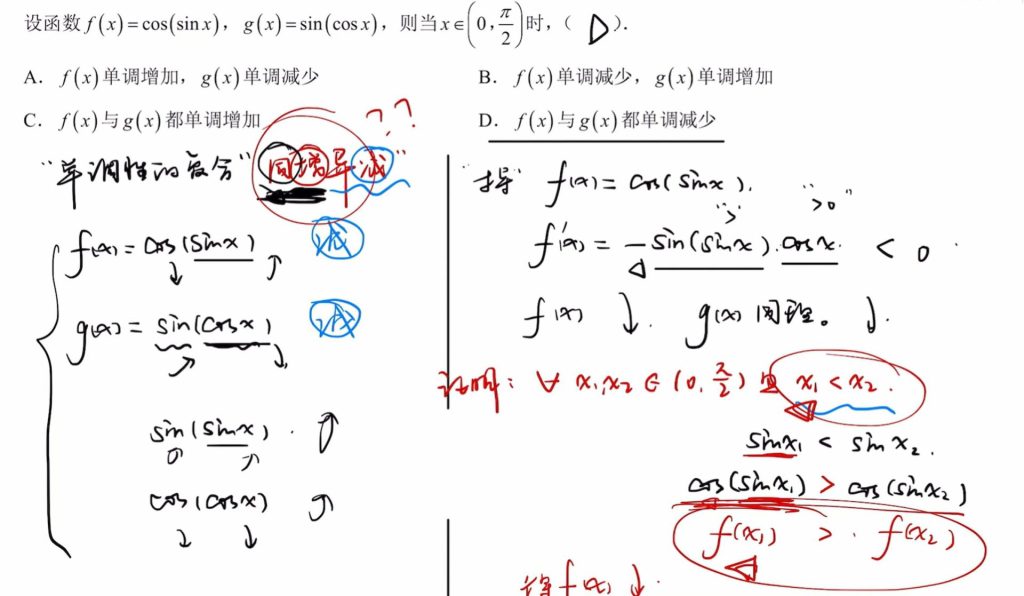 设函数 f(x)=cos(sinx)，g(x)=sin(cosx)，则当 x∈(0, π/2) 时，( D ).
A. f(x)单调增加，g(x)单调减少
B. f(x)单调减少，g(x)单调增加
C. f(x)与g(x)都单调增加
D. f(x)与g(x)都单调减少
??
"单调性的复合" "同增异减"
f(x) = cos(sinx) ↓ ↑ 减
g(x) = sin(cosx) ↑ ↓ 减
sin(sinx). ↑
cos(cosx) ↑
↓ ↓
"求导" f(x) = cos(sinx).
">" ">0"
f'(x) = -sin(sinx).cosx. < 0
f(x) ↓. g(x) 同理。 ↓.
证明: ∀ x₁,x₂ ∈ (0, π/2) 且 x₁ < x₂.
sinx₁ < sinx₂.
cos(sinx₁) > cos(sinx₂)
f(x₁) > f(x₂)
f(x) ↓.